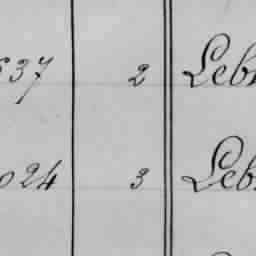 537 2 Leb
024 3 Leb